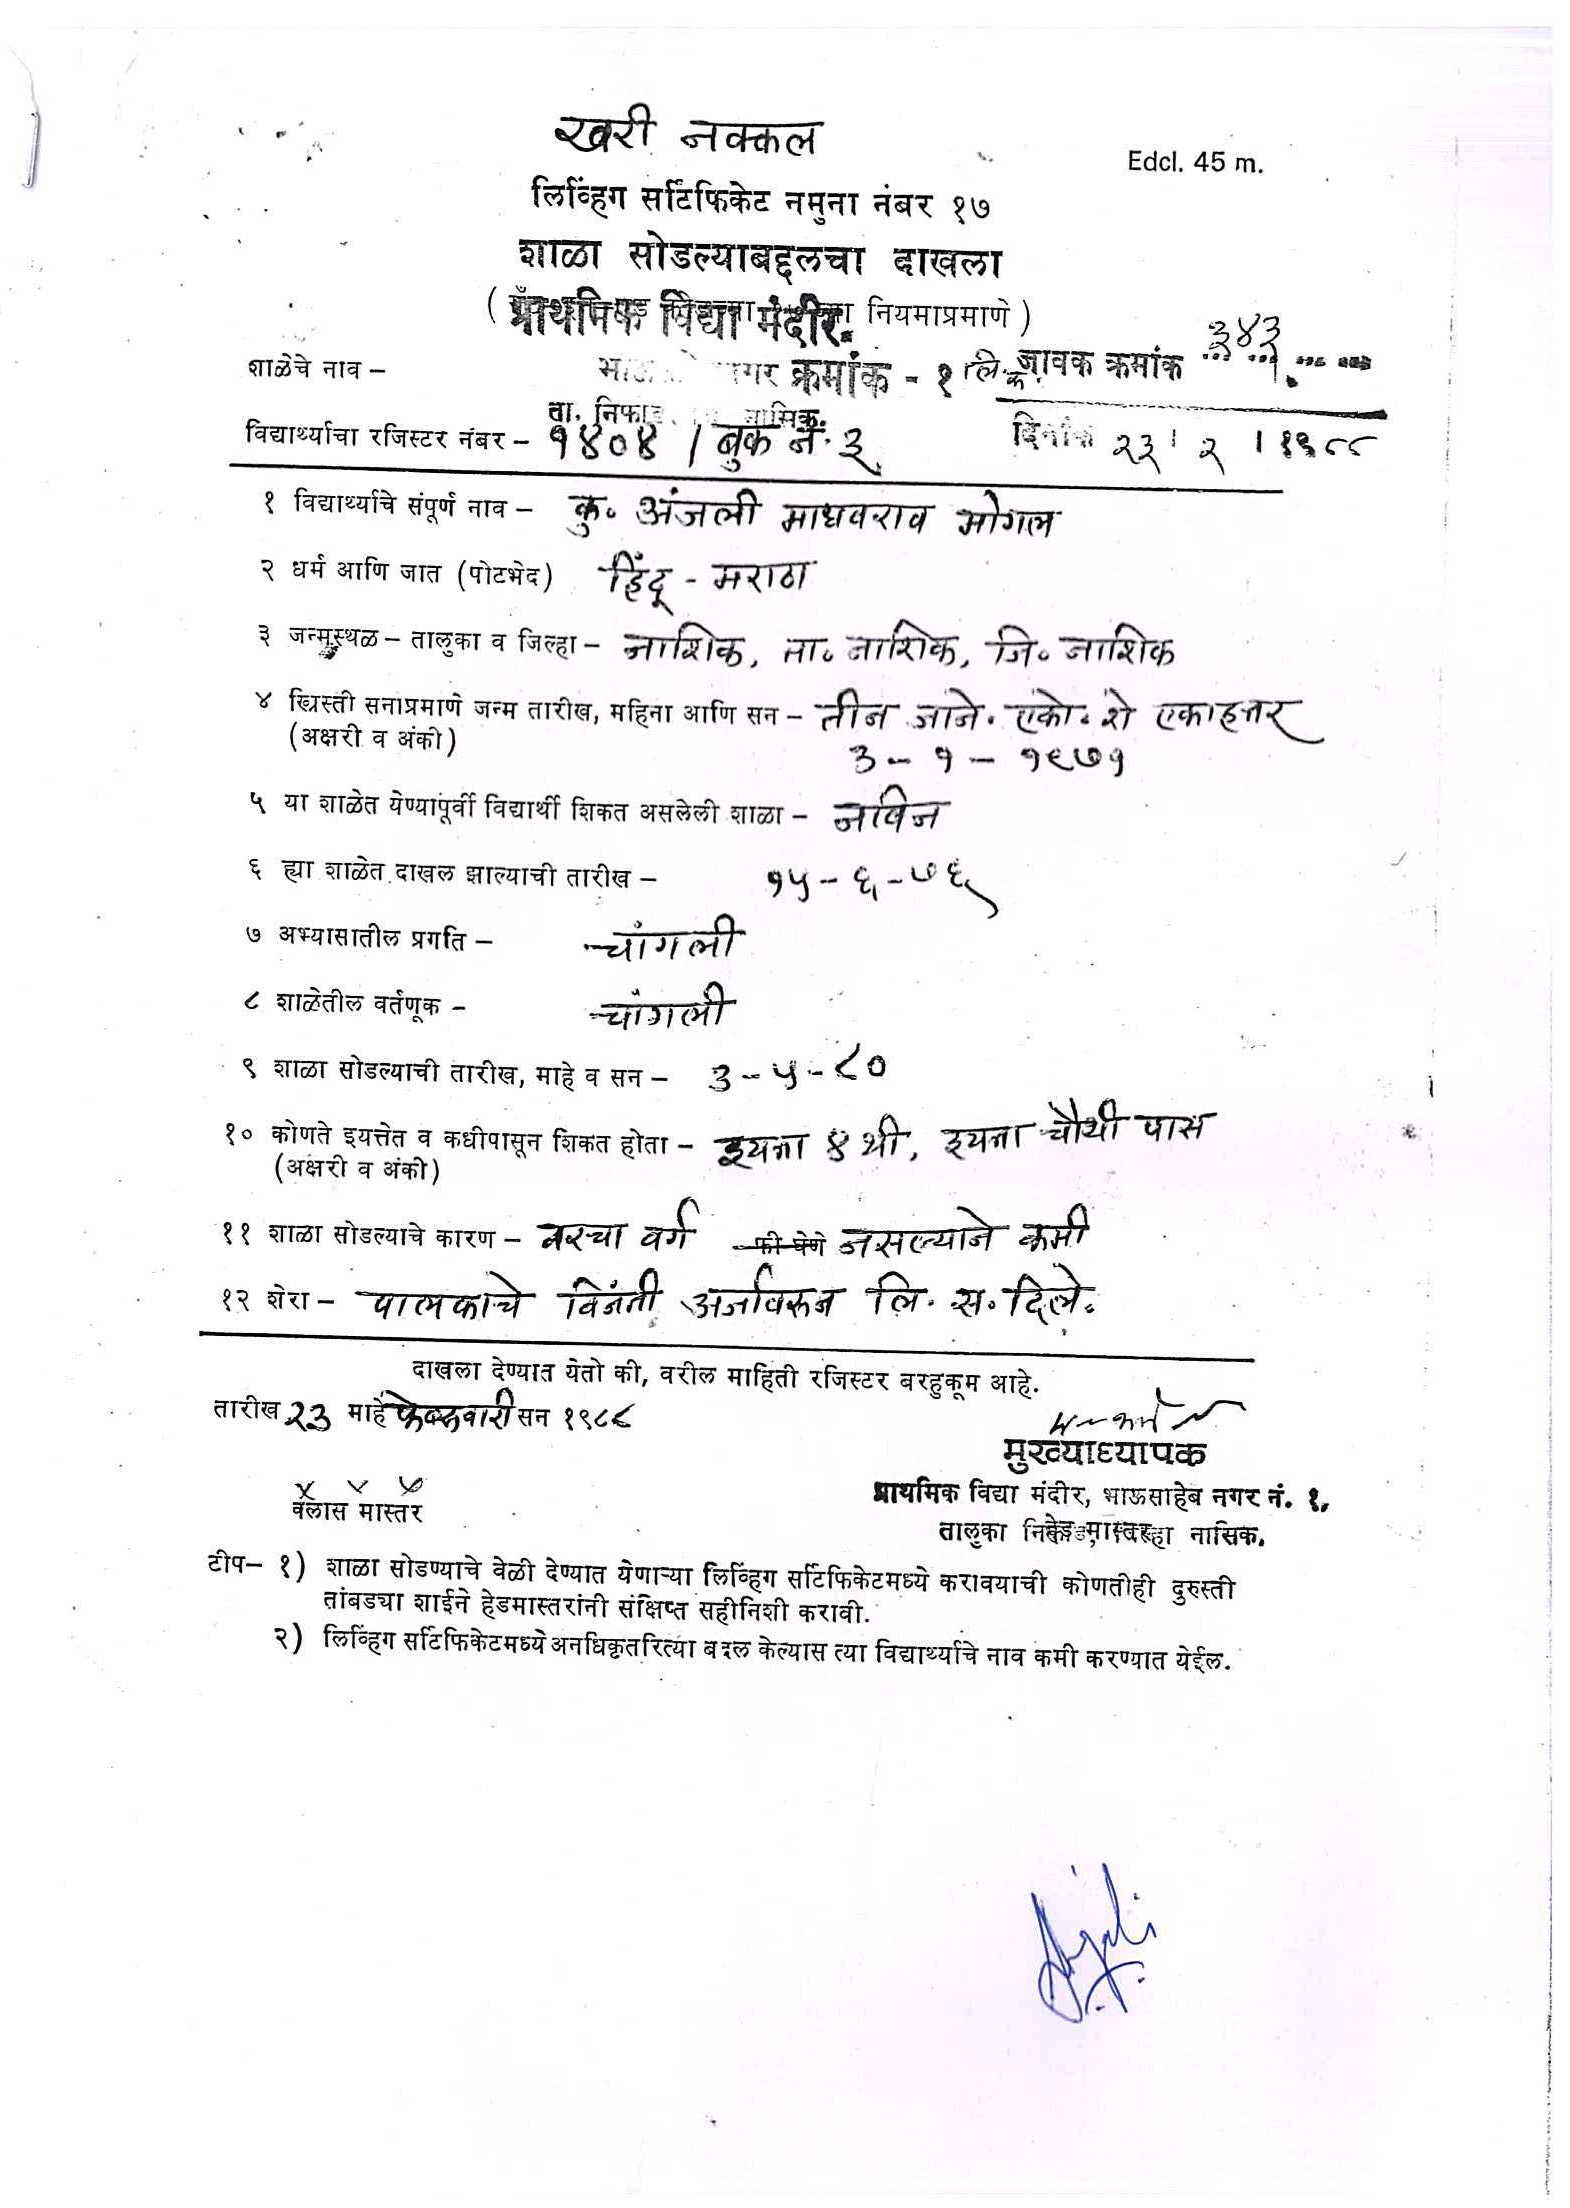 खरी नक्कल
Edcl. 45 m.
लिव्हिंग सर्टिफिकेट नमुना नंबर १७
शाळा सोडल्याबद्दलचा दाखला
( नियमाप्रमाणे )
प्राथमिक विद्या मंदीर.
शाळेचे नाव – क्रमांक - १ जावक क्रमांक ३४३
ता. निफाड
विद्यार्थ्याचा रजिस्टर नंबर – १४०४ / बुक नं. ३ दिनांक २३ । २ । १९८८
१ विद्यार्थ्याचे संपूर्ण नाव – कु. अंजली माधवराव मोगल
२ धर्म आणि जात (पोटभेद) हिंदू - मराठा
३ जन्मस्थळ – तालुका व जिल्हा – नाशिक, ता. नाशिक, जि. नाशिक
४ ख्रिस्ती सनाप्रमाणे जन्म तारीख, महिना आणि सन – तीन जाने. एको. शे एकाहत्तर
(अक्षरी व अंकी) ३ – १ – १९७१
५ या शाळेत येण्यापूर्वी विद्यार्थी शिकत असलेली शाळा – नविन
६ ह्या शाळेत दाखल झाल्याची तारीख – १५ – ६ – ७६
७ अभ्यासातील प्रगति – चांगली
८ शाळेतील वर्तणूक – चांगली
९ शाळा सोडल्याची तारीख, माहे व सन – ३ – ५ – ८०
१० कोणते इयत्तेत व कधीपासून शिकत होता – इयत्ता ४ थी, इयत्ता चौथी पास
(अक्षरी व अंकी)
११ शाळा सोडल्याचे कारण – वरचा वर्ग नसल्याने कमी
१२ शेरा – पालकाचे विनंती अर्जावरुन लि. स. दिले.
दाखला देण्यात येतो की, वरील माहिती रजिस्टर बरहुकूम आहे.
तारीख २३ माहे फेब्रुवारी सन १९८८
मुख्याध्यापक
प्राथमिक विद्या मंदीर, भाऊसाहेब नगर नं. १,
क्लास मास्तर
तालुका नासिक.
टीप– १) शाळा सोडण्याचे वेळी देण्यात येणाऱ्या लिव्हिंग सर्टिफिकेटमध्ये करावयाची कोणतीही दुरुस्ती
तांबड्या शाईने हेडमास्तरांनी संक्षिप्त सहीनिशी करावी.
२) लिव्हिंग सर्टिफिकेटमध्ये अनधिकृतरित्या बदल केल्यास त्या विद्यार्थ्याचे नाव कमी करण्यात येईल.